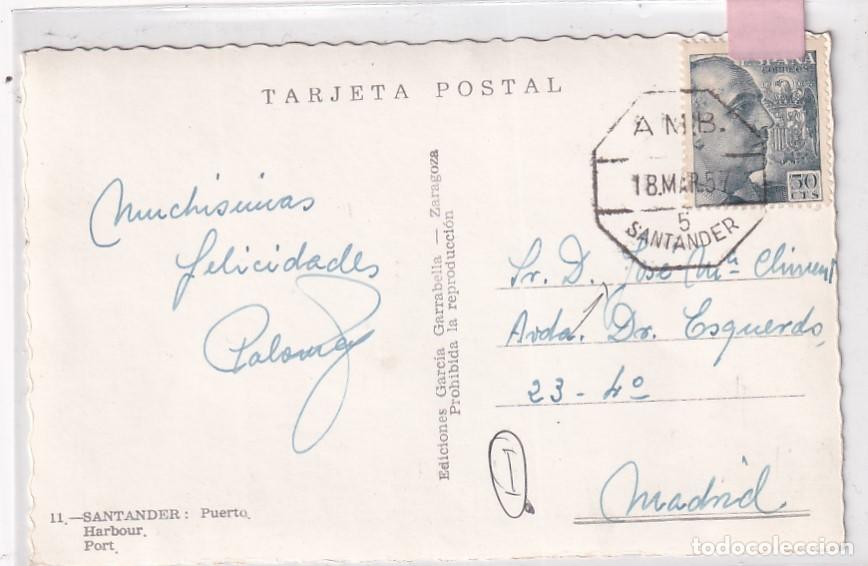 TARJETA POSTAL
ESPAÑA
CORREOS
50
CTS
A M.B.
18.MAR.57
5
SANTANDER
Muchisimas
felicidades
Paloma
Ediciones García Garrabella — Zaragoza
Prohibida la reproducción
Sr. D. Jose Mª Climent
Avda. Dr. Esquerdo,
23 - 4º
Madrid
11.—SANTANDER: Puerto.
Harbour.
Port.
todocoleccion